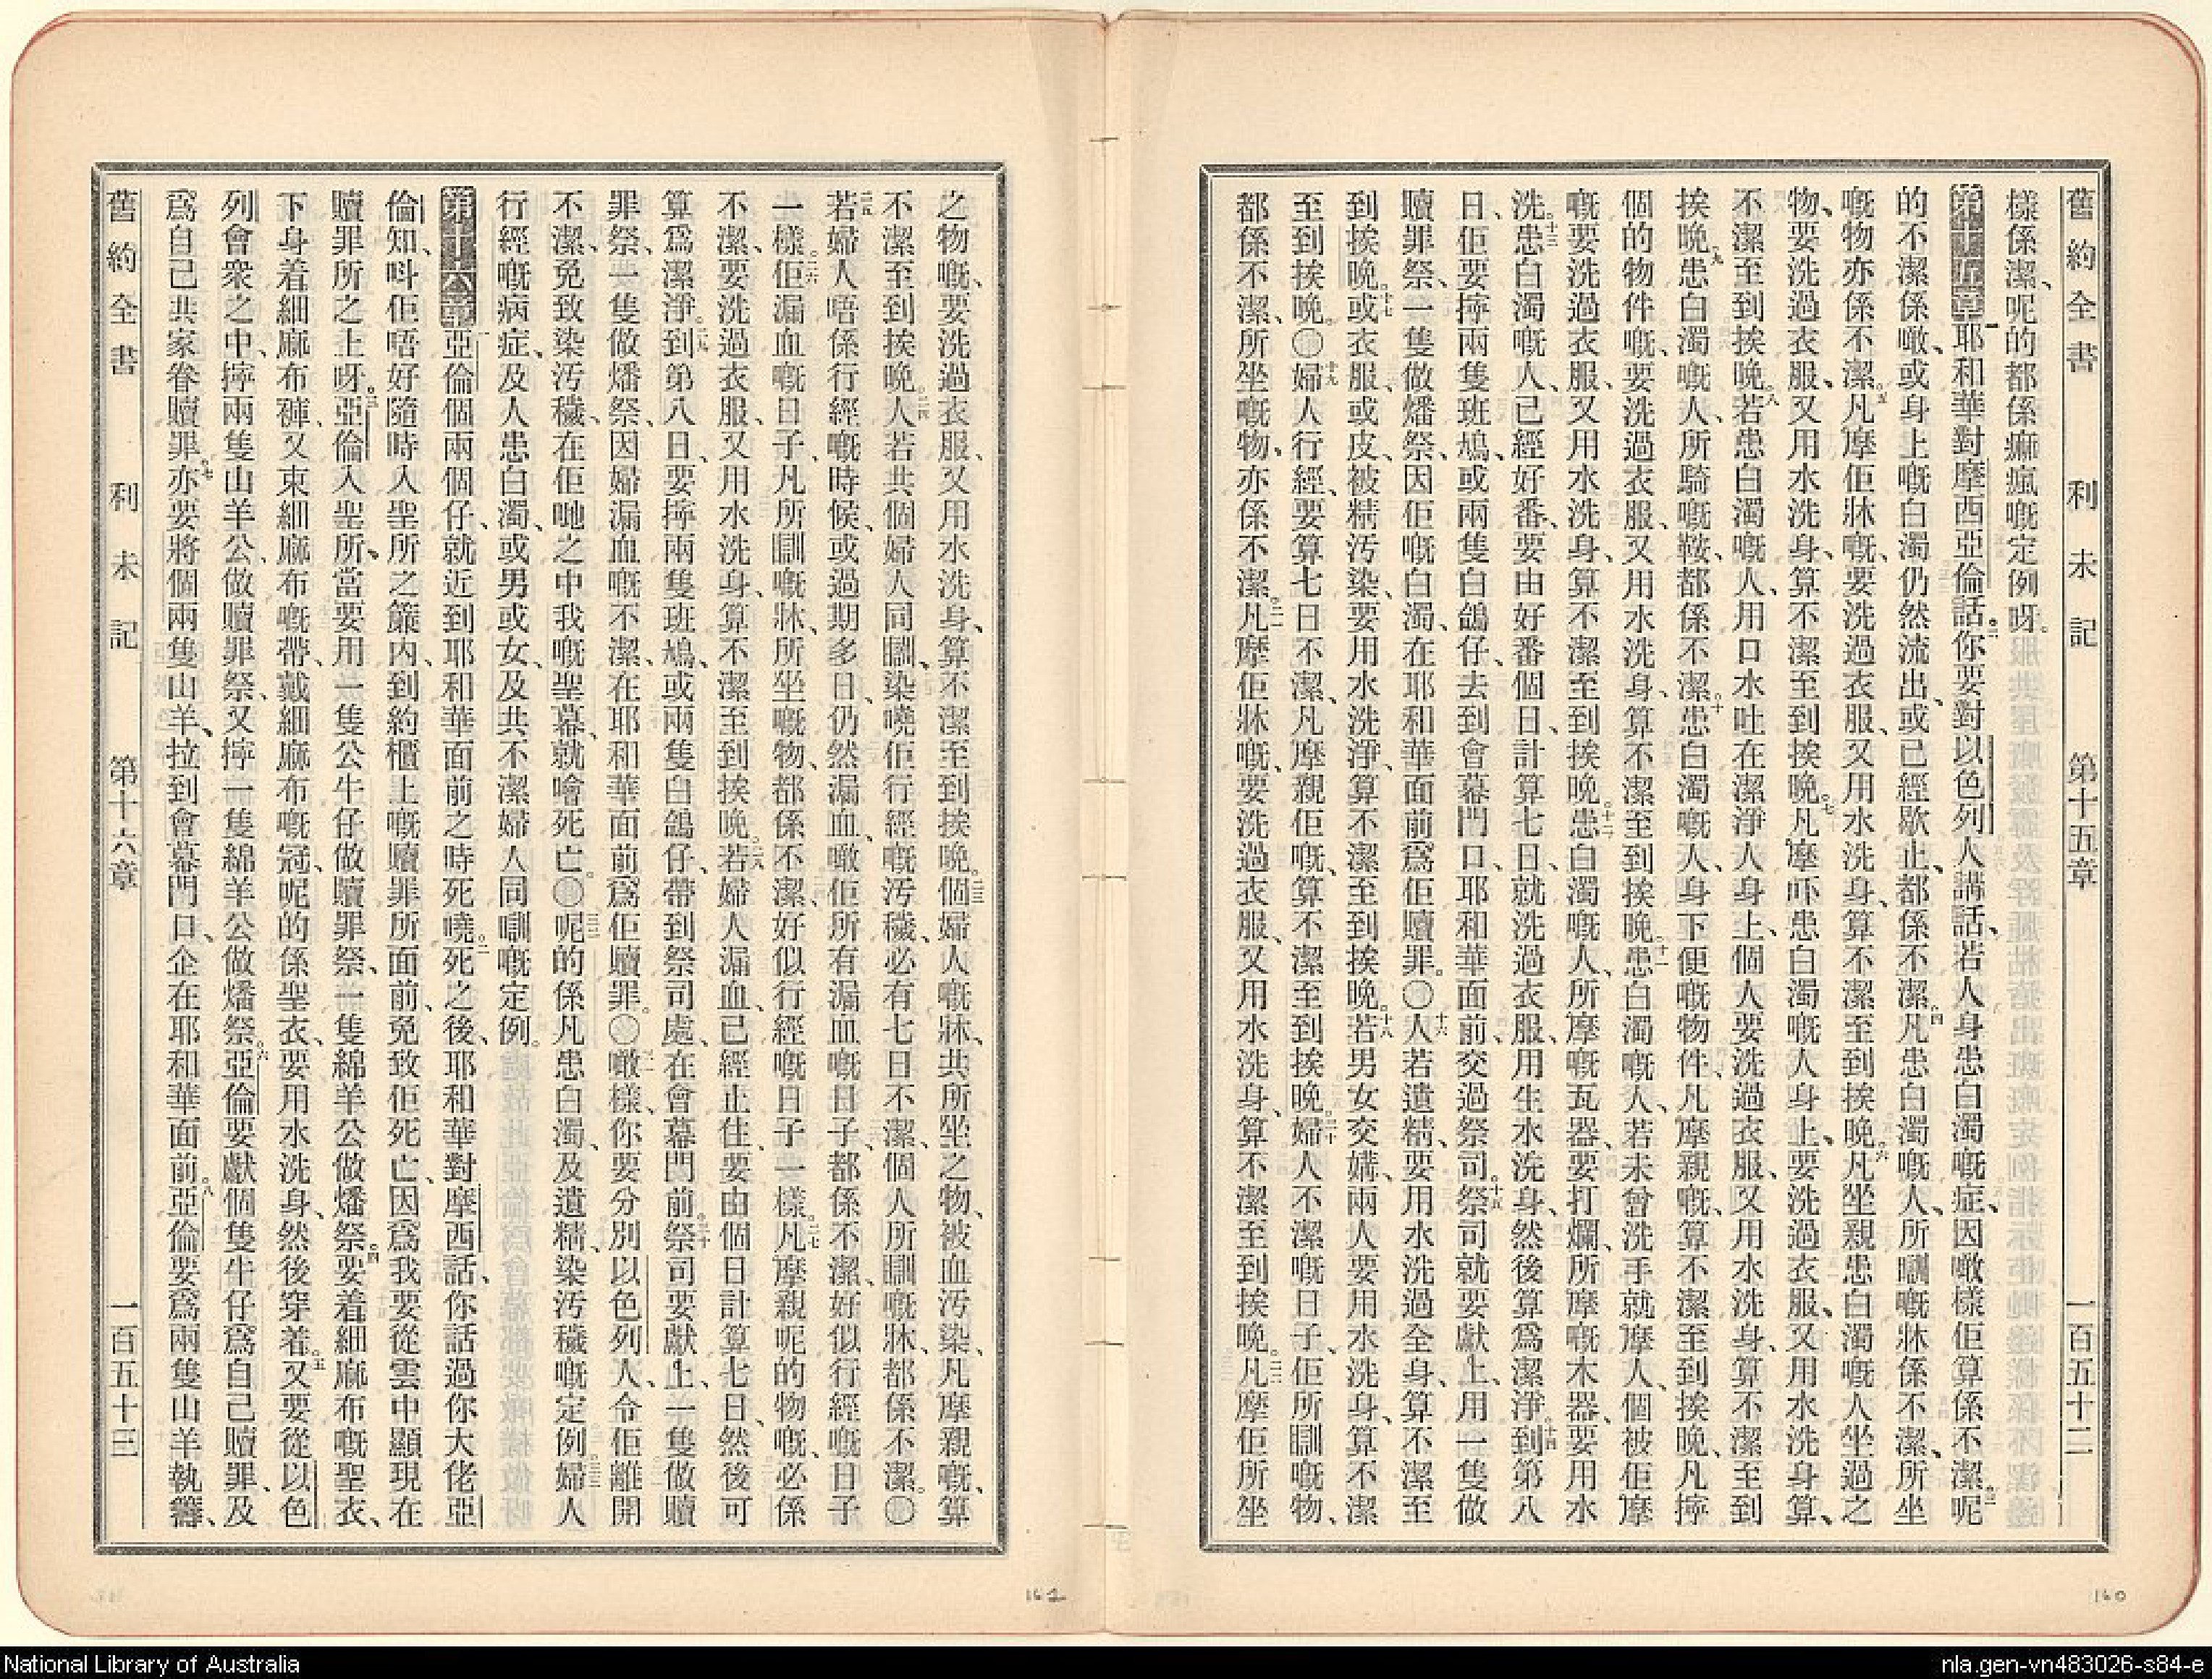 舊約全書 利未記 第十五章 一百五十二
樣係潔、呢的都係痲瘋嘅定例呀。
第十五章 一耶和華對摩西亞倫話、二你要對以色列人講話、若人身患白濁嘅症、因噉樣佢算係不潔。三呢
的不潔係噉、或身上嘅白濁仍然流出、或已經歇止、都係不潔。四凡患白濁嘅人、所瞓嘅牀係不潔、所坐
嘅物亦係不潔。五凡摩佢牀嘅、要洗過衣服、又用水洗身、算不潔至到挨晚。六凡坐親患白濁嘅人坐過之
物、要洗過衣服、又用水洗身、算不潔至到挨晚。七凡摩吓患白濁嘅人身上、要洗過衣服、又用水洗身、算
不潔至到挨晚。八若患白濁嘅人、用口水吐在潔淨人身上、個人要洗過衣服、又用水洗身、算不潔至到
挨晚。九患白濁嘅人、所騎嘅鞍、都係不潔。十患白濁嘅人、身下便嘅物件、凡摩親嘅、算不潔至到挨晚、凡擰
個的物件嘅、要洗過衣服、又用水洗身、算不潔至到挨晚。十一患白濁嘅人、若未曾洗手就摩人、個被佢摩
嘅要洗過衣服、又用水洗身、算不潔至到挨晚。十二患白濁嘅人、所摩嘅瓦器、要打爛、所摩嘅木器、要用水
洗。十三患白濁嘅人、已經好番、要由好番個日、計算七日、就洗過衣服、用生水洗身、然後算爲潔淨。十四到第八
日、佢要擰兩隻班鳩、或兩隻白鴿仔、去到會幕門口、耶和華面前、交過祭司。十五祭司就要獻上、用一隻做
贖罪祭、一隻做燔祭、因佢嘅白濁、在耶和華面前、爲佢贖罪。〇十六人若遺精、要用水洗過全身、算不潔至
到挨晚。十七或衣服、或皮、被精污染、要用水洗淨、算不潔至到挨晚。十八若男女交媾、兩人要用水洗身、算不潔
至到挨晚。〇十九婦人行經、要算七日不潔、凡摩親佢嘅、算不潔至到挨晚。二十婦人不潔嘅日子、佢所瞓嘅物、
都係不潔、所坐嘅物、亦係不潔。二一凡摩佢牀嘅、要洗過衣服、又用水洗身、算不潔至到挨晚。二二凡摩佢所坐
之物嘅、要洗過衣服、又用水洗身、算不潔至到挨晚。二三個婦人嘅牀、共所坐之物、被血污染、凡摩親嘅、算
不潔至到挨晚。二四人若共個婦人同瞓、染嘵佢行經嘅污穢、必有七日不潔、個人所瞓嘅牀、都係不潔。〇
二五若婦人唔係行經嘅時候、或過期多日、仍然漏血、噉佢所有漏血嘅日子、都係不潔、好似行經嘅日子
一樣。二六佢漏血嘅日子、凡所瞓嘅牀、所坐嘅物、都係不潔、好似行經嘅日子一樣。二七凡摩親呢的物嘅、必係
不潔、要洗過衣服、又用水洗身、算不潔至到挨晚。二八若婦人漏血、已經止住、要由個日計算七日、然後可
算爲潔淨。二九到第八日、要擰兩隻班鳩、或兩隻白鴿仔、帶到祭司處、在會幕門前。三十祭司要獻上、一隻做贖
罪祭、一隻做燔祭、因婦漏血嘅不潔、在耶和華面前、爲佢贖罪。〇三一噉樣、你要分別以色列人、令佢離開
不潔、免致染污穢、在佢哋之中我嘅聖幕、就噲死亡。〇三二呢的係凡患白濁、及遺精、染污穢嘅定例。三三婦人
行經嘅病症、及人患白濁、或男或女、及共不潔婦人同瞓嘅定例。
第十六章 一亞倫個兩個仔、就近到耶和華面前之時死嘵。二死之後、耶和華對摩西話、你話過你大佬亞
倫知、呌佢唔好隨時入聖所之簾內、到約櫃上嘅贖罪所面前、免致佢死亡、因爲我要從雲中顯現在
贖罪所之上呀。三亞倫入聖所、當要用一隻公牛仔做贖罪祭、一隻綿羊公做燔祭。四要着細蔴布嘅聖衣、
下身着細蔴布褲、又束細蔴布嘅帶、戴細蔴布嘅冠、呢的係聖衣、要用水洗身、然後穿着。五又要從以色
列會衆之中、擰兩隻山羊公、做贖罪祭、又擰一隻綿羊公做燔祭。六亞倫要獻個隻牛仔、爲自己贖罪、及
爲自己共家眷贖罪。七亦要將個兩隻山羊、拉到會幕門口、企在耶和華面前。八亞倫要爲兩隻山羊執籌、
舊約全書 利未記 第十六章 一百五十三
162
160
National Library of Australia
nla.gen-vn483026-s84-e